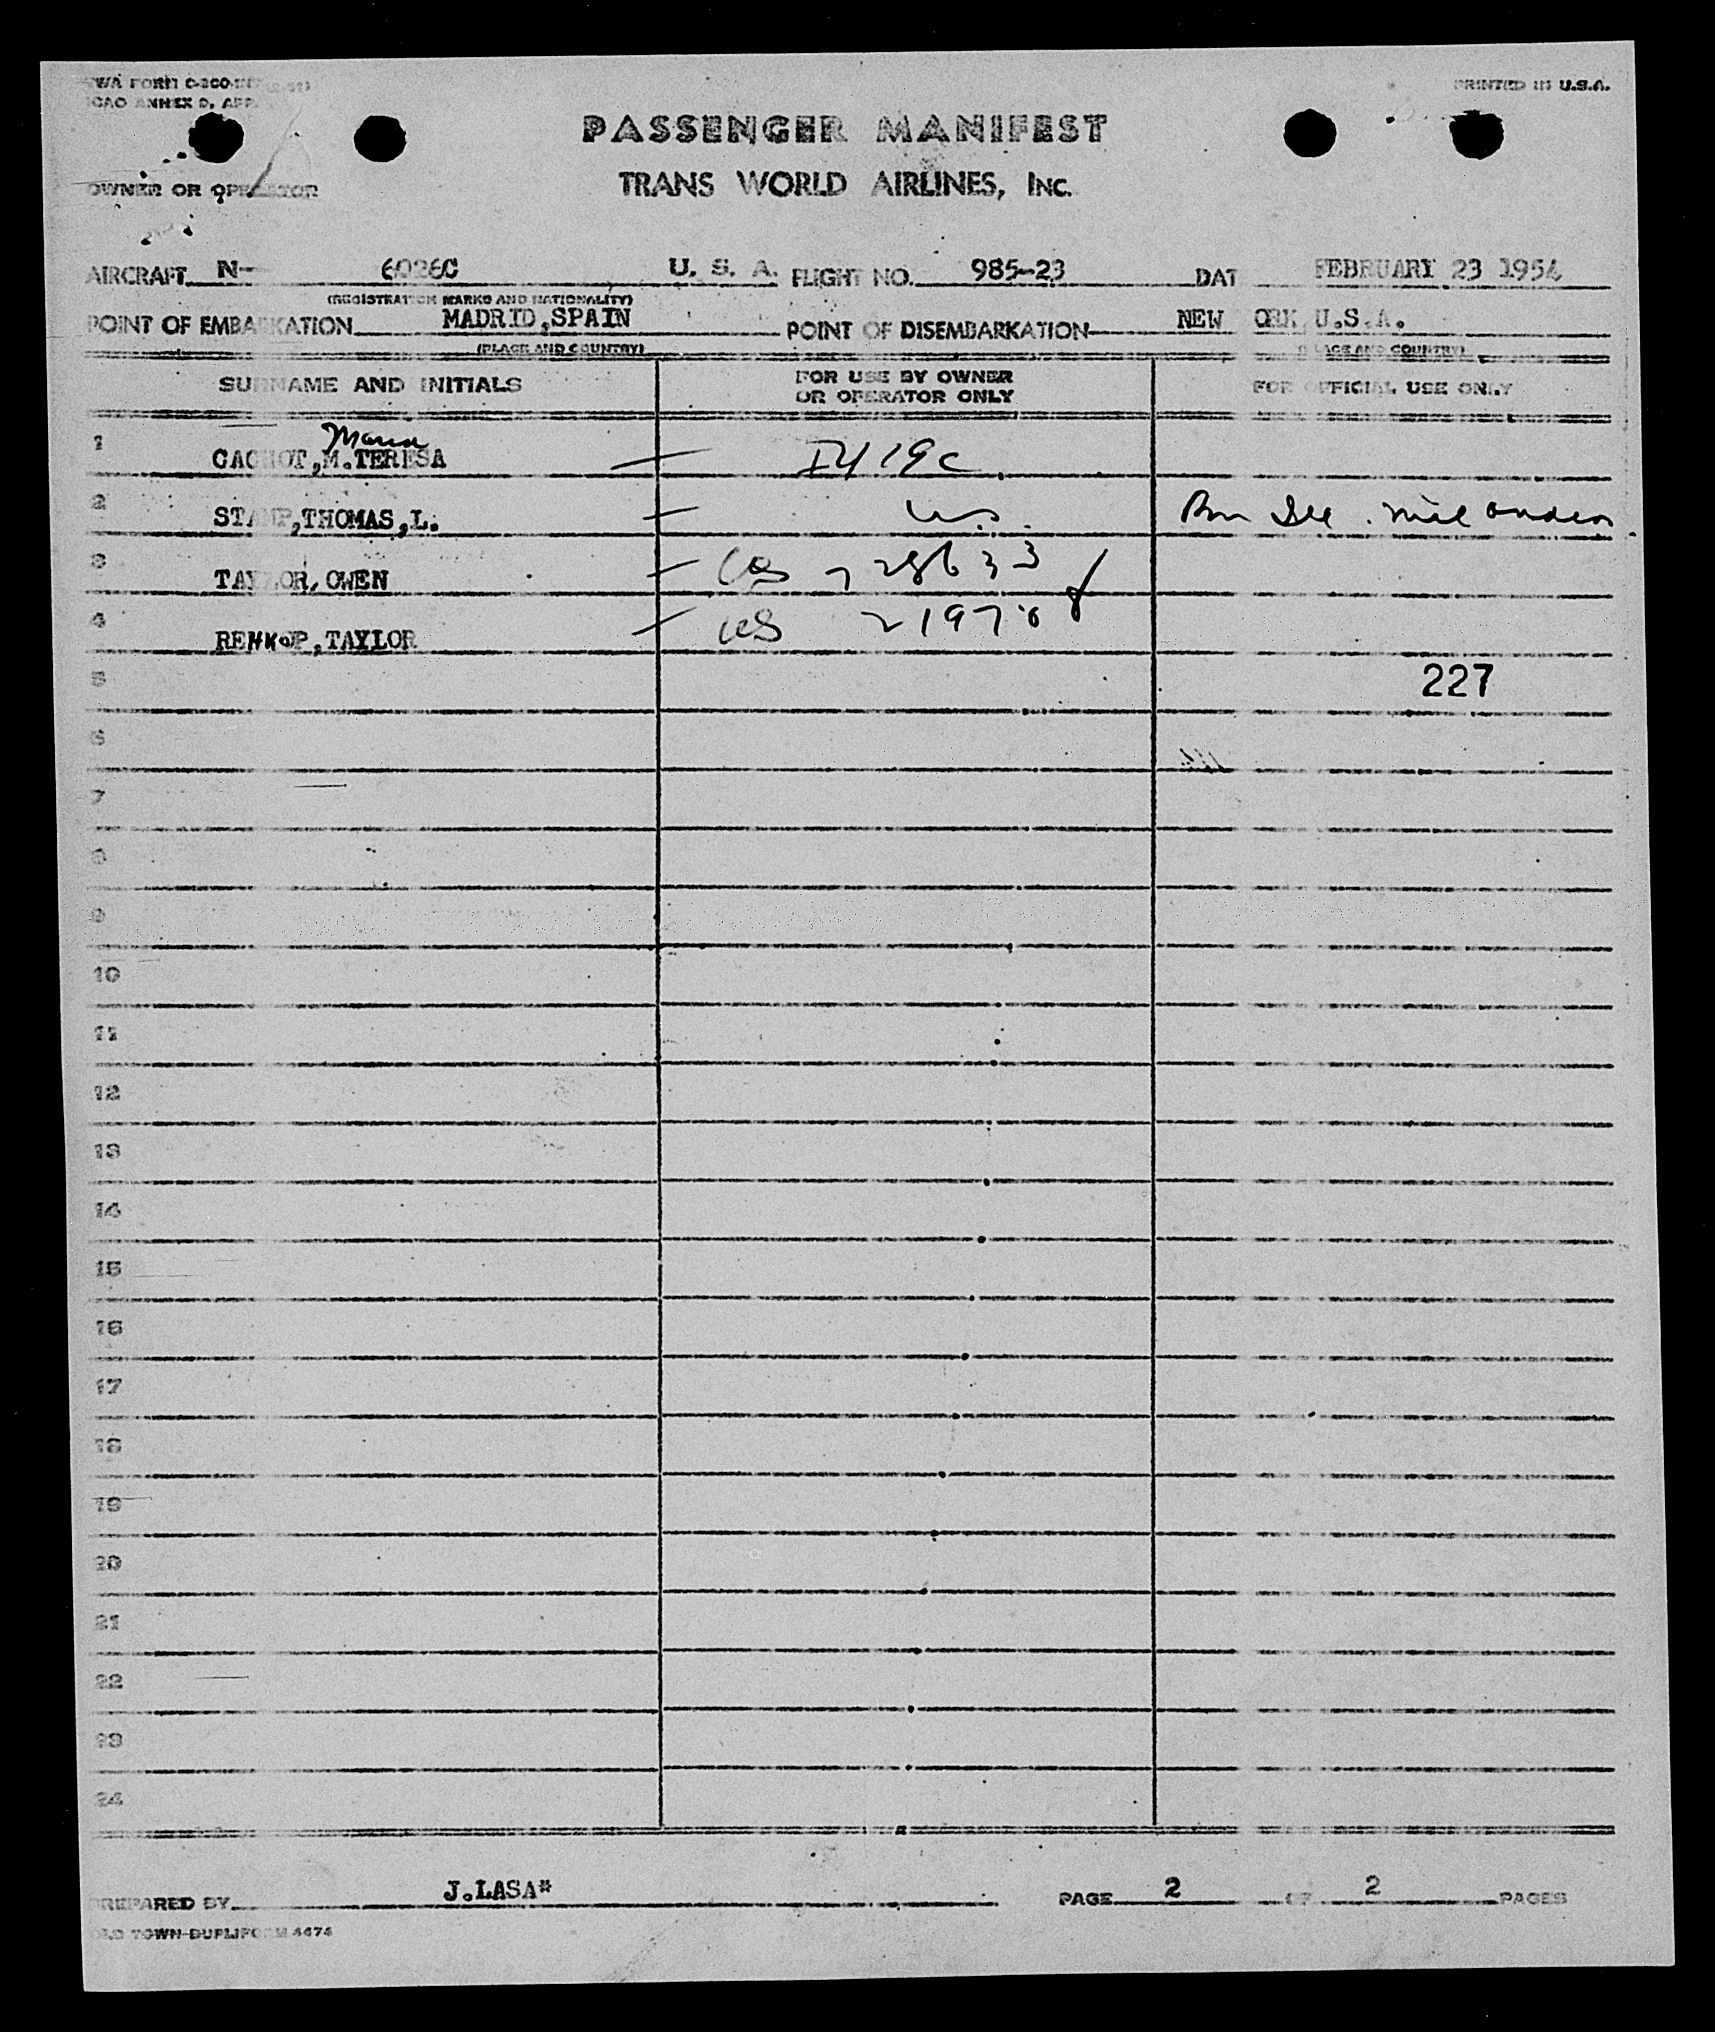 TWA FORM C-200-INT
ICAO ANNEX 9, APP.
PRINTED IN U.S.A.
PASSENGER MANIFEST
TRANS WORLD AIRLINES, INC.
OWNER OR OPERATOR
AIRCRAFT N- 6026C U. S. A. FLIGHT NO. 985-23 DAT FEBRUARY 23 1954
(REGISTRATION MARKS AND NATIONALITY)
POINT OF EMBARKATION MADRID,SPAIN POINT OF DISEMBARKATION NEW ORK U.S.A.
(PLACE AND COUNTRY) (PLACE AND COUNTRY)
SURNAME AND INITIALS FOR USE BY OWNER OR OPERATOR ONLY FOR OFFICIAL USE ONLY
Maria
1 CACHOT,M.TERESA — I4 19c
2 STAMP,THOMAS,L. — U.S. mil orders
3 TAYLOR,OWEN — US 728633
4 RENKOP,TAYLOR — US 21978
5 227
6
7
8
9
10
11
12
13
14
15
16
17
18
19
20
21
22
23
24
PREPARED BY J.LASA* PAGE 2 OF 2 PAGES
OLD TOWN-DUPLIFORM 4474